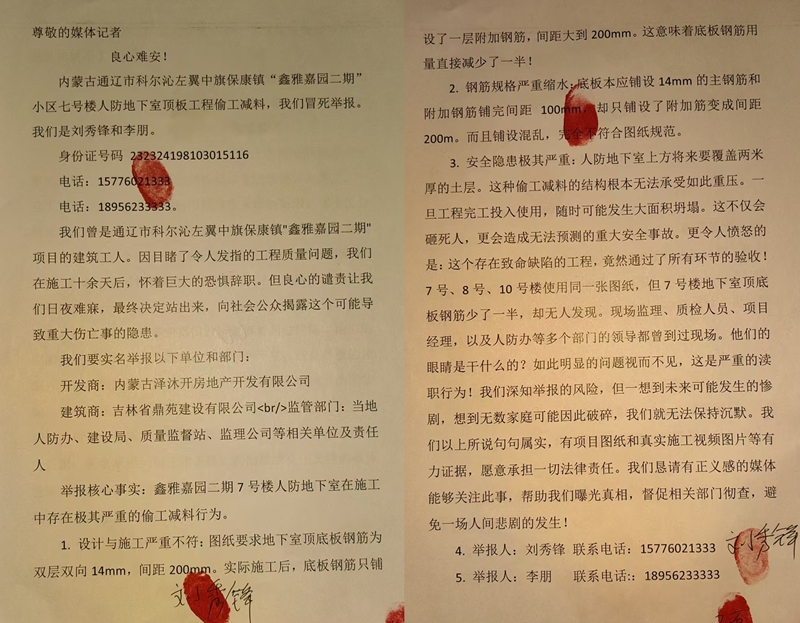 尊敬的媒体记者
良心难安！
内蒙古通辽市科尔沁左翼中旗保康镇“鑫雅嘉园二期”
小区七号楼人防地下室顶板工程偷工减料，我们冒死举报。
我们是刘秀锋和李朋。
身份证号码 232324198103015116
电话：15776021333
电话：18956233333。
我们曾是通辽市科尔沁左翼中旗保康镇"鑫雅嘉园二期"
项目的建筑工人。因目睹了令人发指的工程质量问题，我们
在施工十余天后，怀着巨大的恐惧辞职。但良心的谴责让我
们日夜难寐，最终决定站出来，向社会公众揭露这个可能导
致重大伤亡事的隐患。
我们要实名举报以下单位和部门：
开发商：内蒙古泽沐开房地产开发有限公司
建筑商：吉林省鼎苑建设有限公司<br/>监管部门：当地
人防办、建设局、质量监督站、监理公司等相关单位及责任
人
举报核心事实：鑫雅嘉园二期 7 号楼人防地下室在施工
中存在极其严重的偷工减料行为。
1. 设计与施工严重不符：图纸要求地下室顶底板钢筋为
双层双向 14mm，间距 200mm。实际施工后，底板钢筋只铺
刘秀锋
设了一层附加钢筋，间距大到 200mm。这意味着底板钢筋用
量直接减少了一半！
2. 钢筋规格严重缩水：底板本应铺设 14mm 的主钢筋和
附加钢筋铺完间距 100mm，却只铺设了附加筋变成间距
200m。而且铺设混乱，完全不符合图纸规范。
3. 安全隐患极其严重：人防地下室上方将来要覆盖两米
厚的土层。这种偷工减料的结构根本无法承受如此重压。一
旦工程完工投入使用，随时可能发生大面积坍塌。这不仅会
砸死人，更会造成无法预测的重大安全事故。更令人愤怒的
是：这个存在致命缺陷的工程，竟然通过了所有环节的验收！
7 号、8 号、10 号楼使用同一张图纸，但 7 号楼地下室顶底
板钢筋少了一半，却无人发现。现场监理、质检人员、项目
经理，以及人防办等多个部门的领导都曾到过现场。他们的
眼睛是干什么的？如此明显的问题视而不见，这是严重的渎
职行为！我们深知举报的风险，但一想到未来可能发生的惨
剧，想到无数家庭可能因此破碎，我们就无法保持沉默。我
们以上所说句句属实，有项目图纸和真实施工视频图片等有
力证据，愿意承担一切法律责任。我们恳请有正义感的媒体
能够关注此事，帮助我们曝光真相，督促相关部门彻查，避
免一场人间悲剧的发生！
4. 举报人：刘秀锋 联系电话：15776021333
刘秀锋
5. 举报人：李朋 联系电话：：18956233333